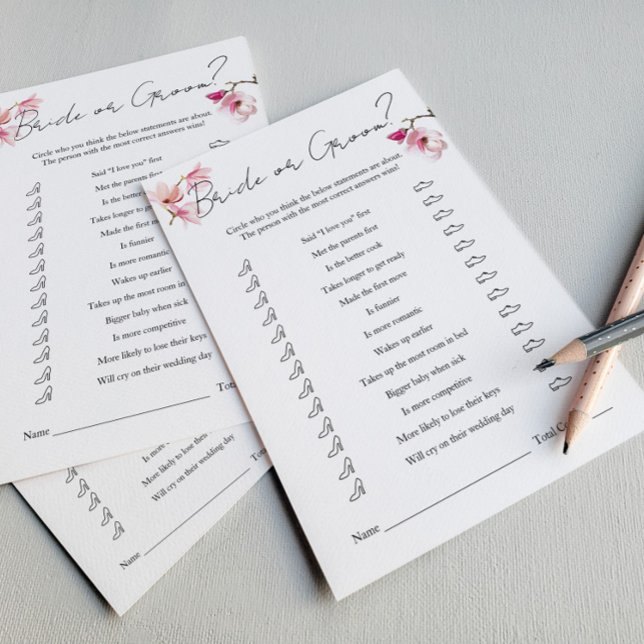 Bride or Groom?
Circle who you think the below statements are about.
The person with the most correct answers wins!
Said "I love you" first
Met the parents first
Is the better cook
Takes longer to get ready
Made the first move
Is funnier
Is more romantic
Wakes up earlier
Takes up the most room in bed
Bigger baby when sick
Is more competitive
More likely to lose their keys
Will cry on their wedding day
Name Total
Bride or Groom?
Circle who you think the below statements are about.
The person with the most correct answers wins!
Said "I love you" first
Met the parents first
Is the better cook
Takes longer to get ready
Made the first move
Is funnier
Is more romantic
Wakes up earlier
Takes up the most room in bed
Bigger baby when sick
Is more competitive
More likely to lose their keys
Will cry on their wedding day
Name Total Co
Is more
More likely to lose their
Will cry on their wedding day
Name